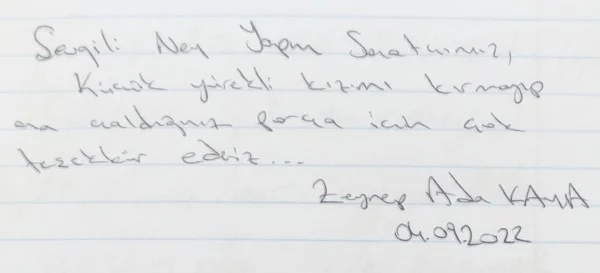 Sevgili Ney Yapım Sanatçımız,
Küçük yürekli kızımı kırmayıp
ona çaldığınız parça için çok
teşekkür ederiz...
Zeynep Ada KAYA
04.09.2022